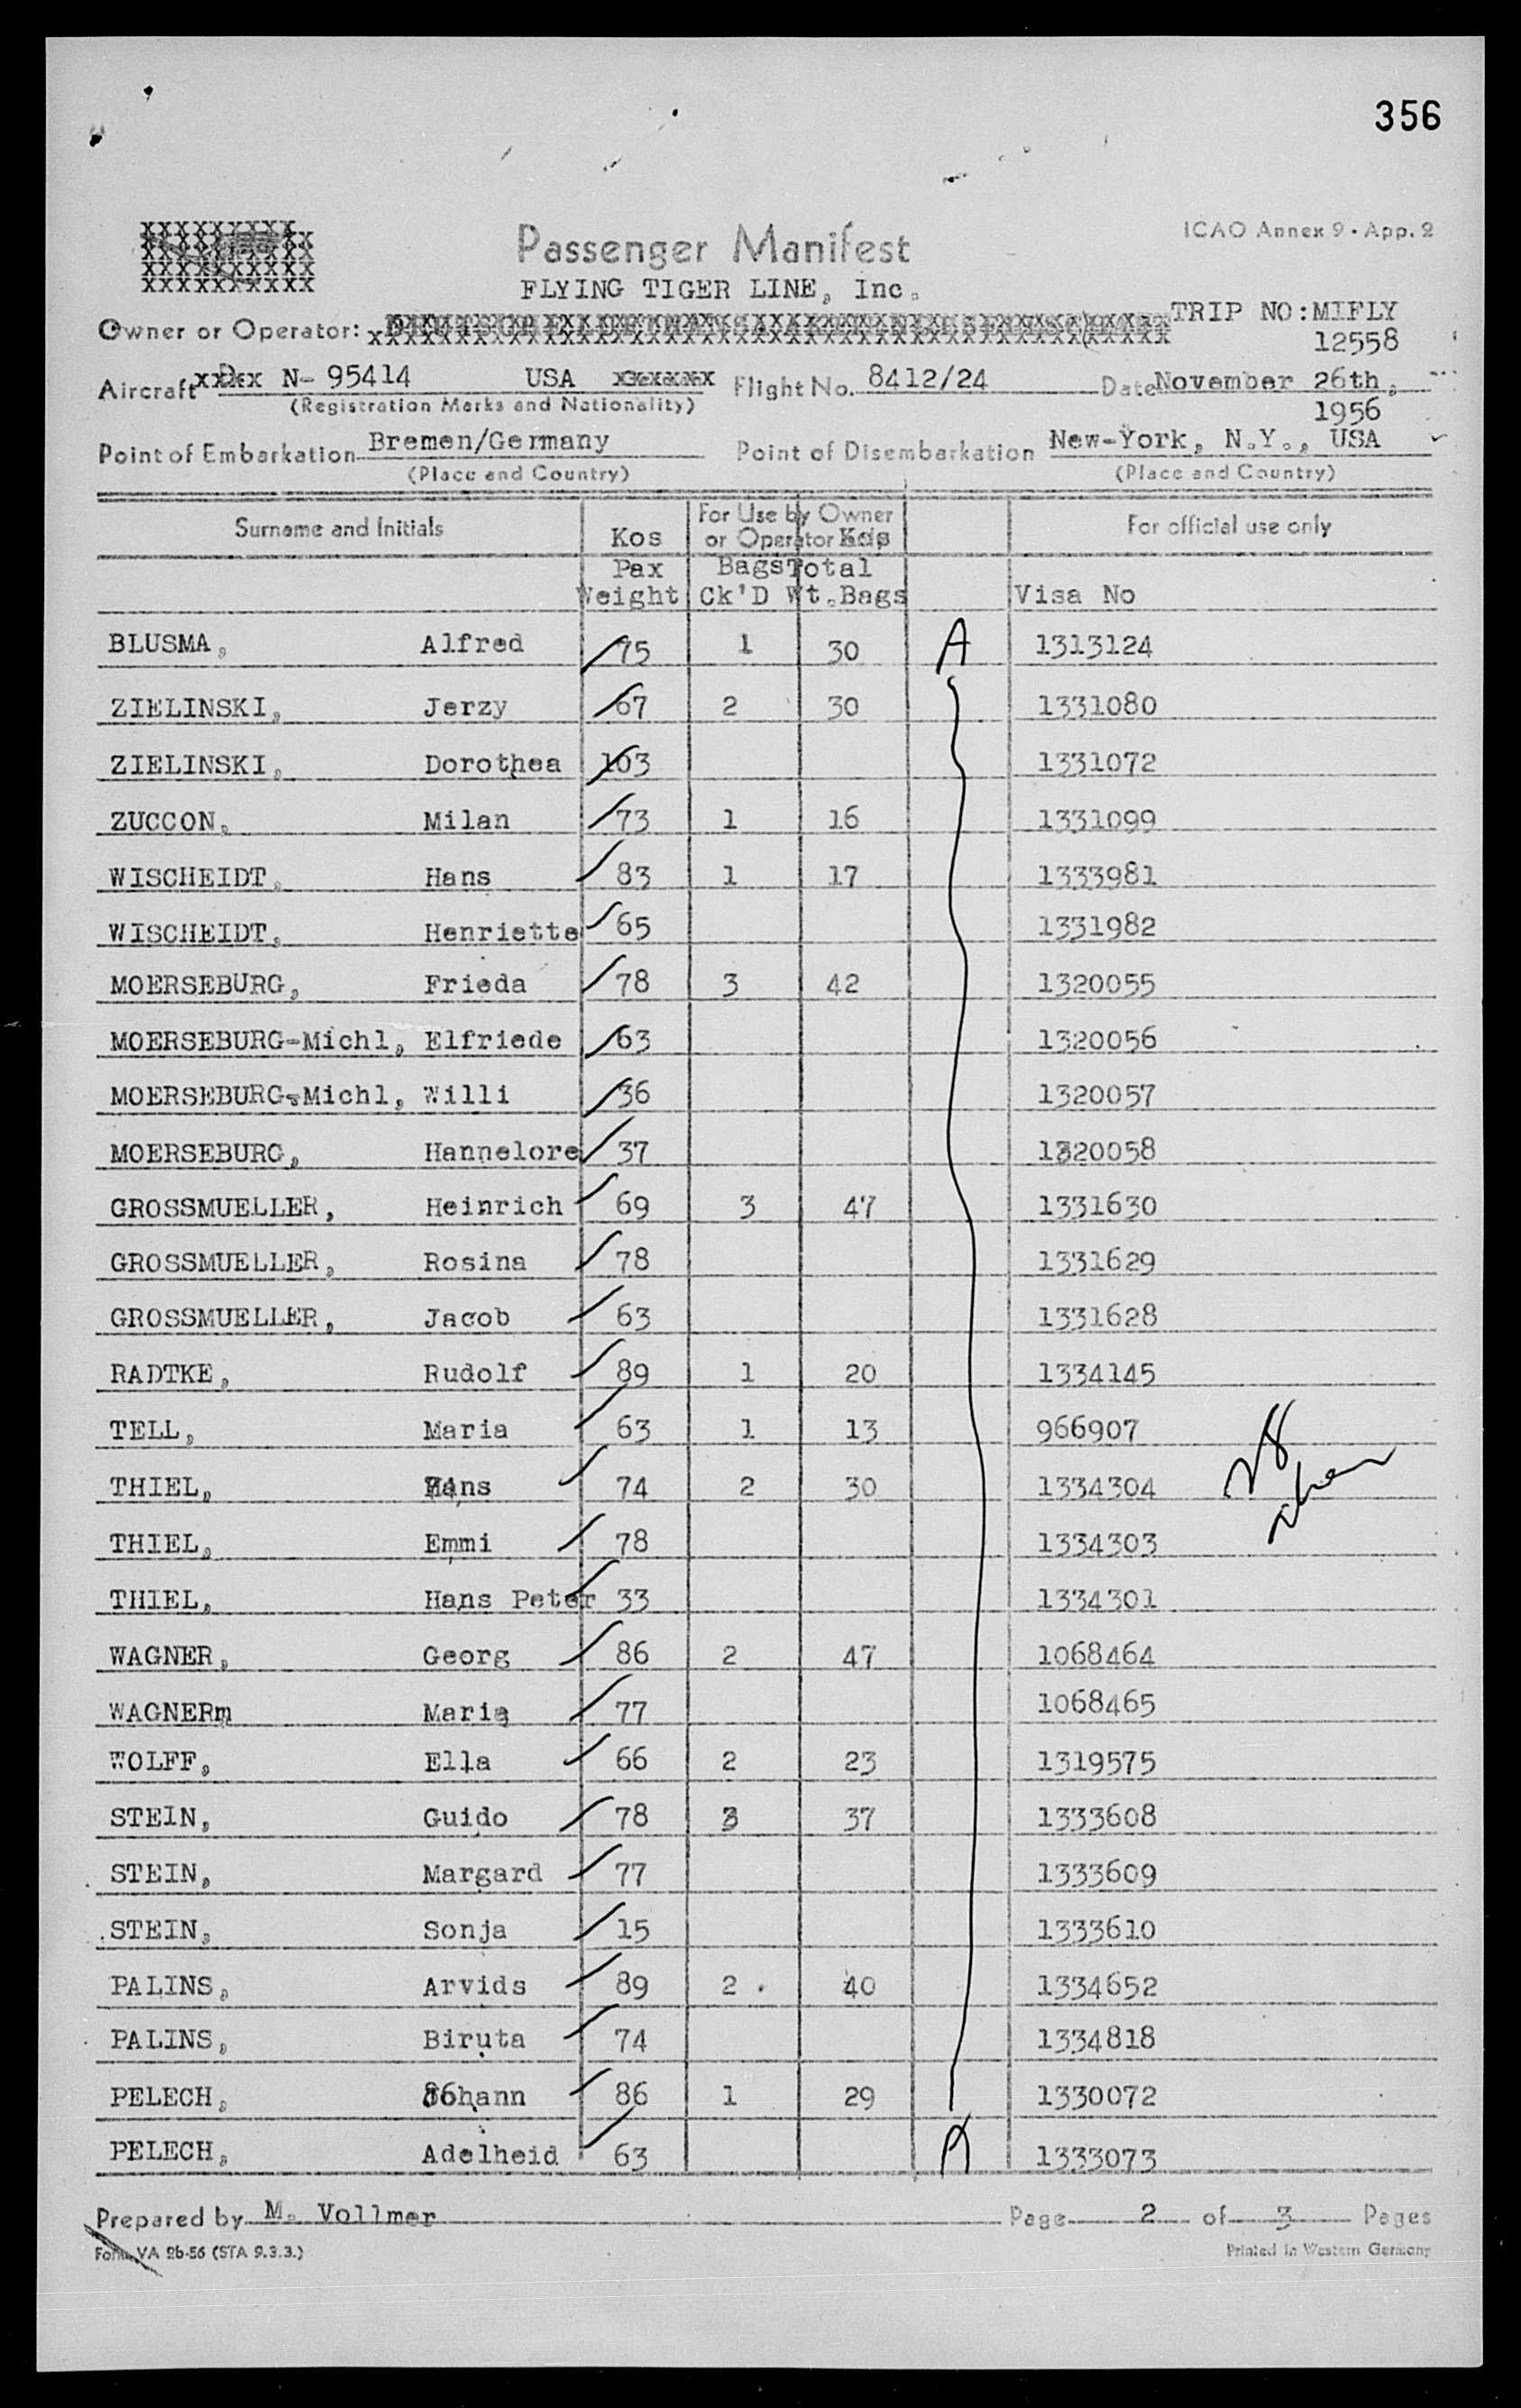 356
ICAO Annex 9 · App. 2
Passenger Manifest
FLYING TIGER LINE, Inc.
TRIP NO:MIFLY
Owner or Operator:
12558
Aircraft N- 95414 USA Flight No. 8412/24 Date November 26th,
(Registration Marks and Nationality) 1956
Point of Embarkation Bremen/Germany Point of Disembarkation New-York, N.Y., USA
(Place and Country) (Place and Country)
Surname and Initials Kos For Use by Owner or Operator For official use only
Pax Bags Total
Weight Ck'D Wt.Bags Visa No
BLUSMA, Alfred 75 1 30 A 1313124
ZIELINSKI, Jerzy 67 2 30 1331080
ZIELINSKI, Dorothea 103 1331072
ZUCCON, Milan 73 1 16 1331099
WISCHEIDT, Hans 83 1 17 1333981
WISCHEIDT, Henriette 65 1331982
MOERSEBURG, Frieda 78 3 42 1320055
MOERSEBURG-Michl, Elfriede 63 1320056
MOERSEBURG-Michl, Willi 36 1320057
MOERSEBURG, Hannelore 37 1320058
GROSSMUELLER, Heinrich 69 3 47 1331630
GROSSMUELLER, Rosina 78 1331629
GROSSMUELLER, Jacob 63 1331628
RADTKE, Rudolf 89 1 20 1334145
TELL, Maria 63 1 13 966907
THIEL, Hans 74 2 30 1334304
28
THIEL, Emmi 78 1334303
THIEL, Hans Peter 33 1334301
WAGNER, Georg 86 2 47 1068464
WAGNERm Maria 77 1068465
WOLFF, Ella 66 2 23 1319575
STEIN, Guido 78 3 37 1333608
STEIN, Margard 77 1333609
STEIN, Sonja 15 1333610
PALINS, Arvids 89 2 40 1334652
PALINS, Biruta 74 1334818
PELECH, Johann 86 1 29 1330072
PELECH, Adelheid 63 A 1333073
Prepared by M. Vollmer Page 2 of 3 Pages
Form VA 2b-56 (STA 9.3.3.) Printed in Western Germany